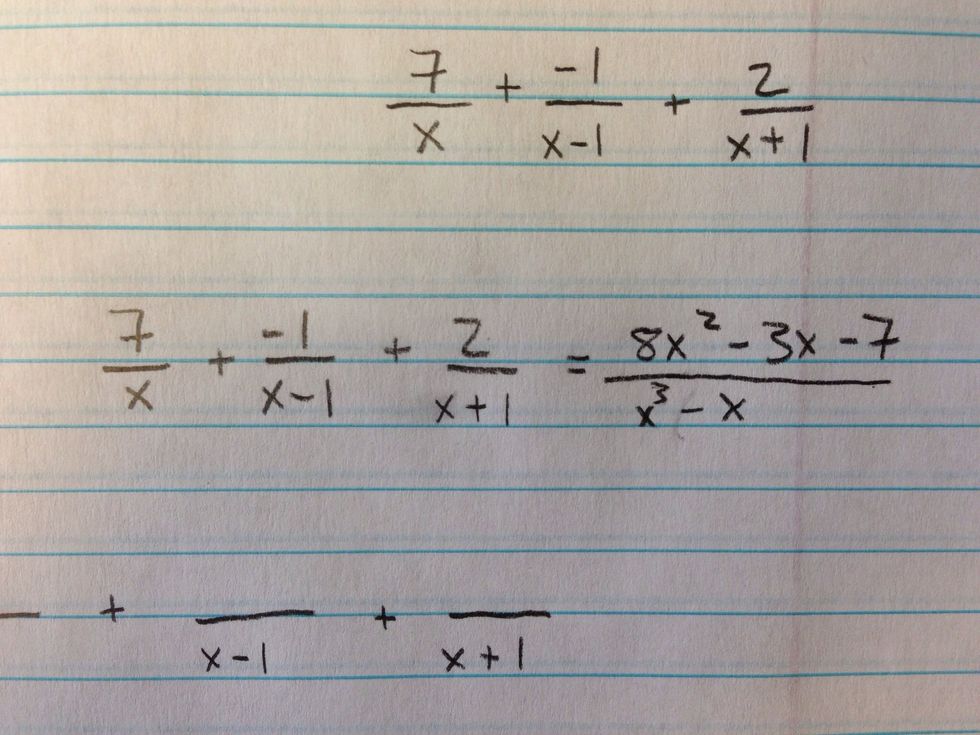 7/x + -1/x-1 + 2/x+1
7/x + -1/x-1 + 2/x+1 = 8x² - 3x - 7/x³ - x
— + —/x-1 + —/x+1